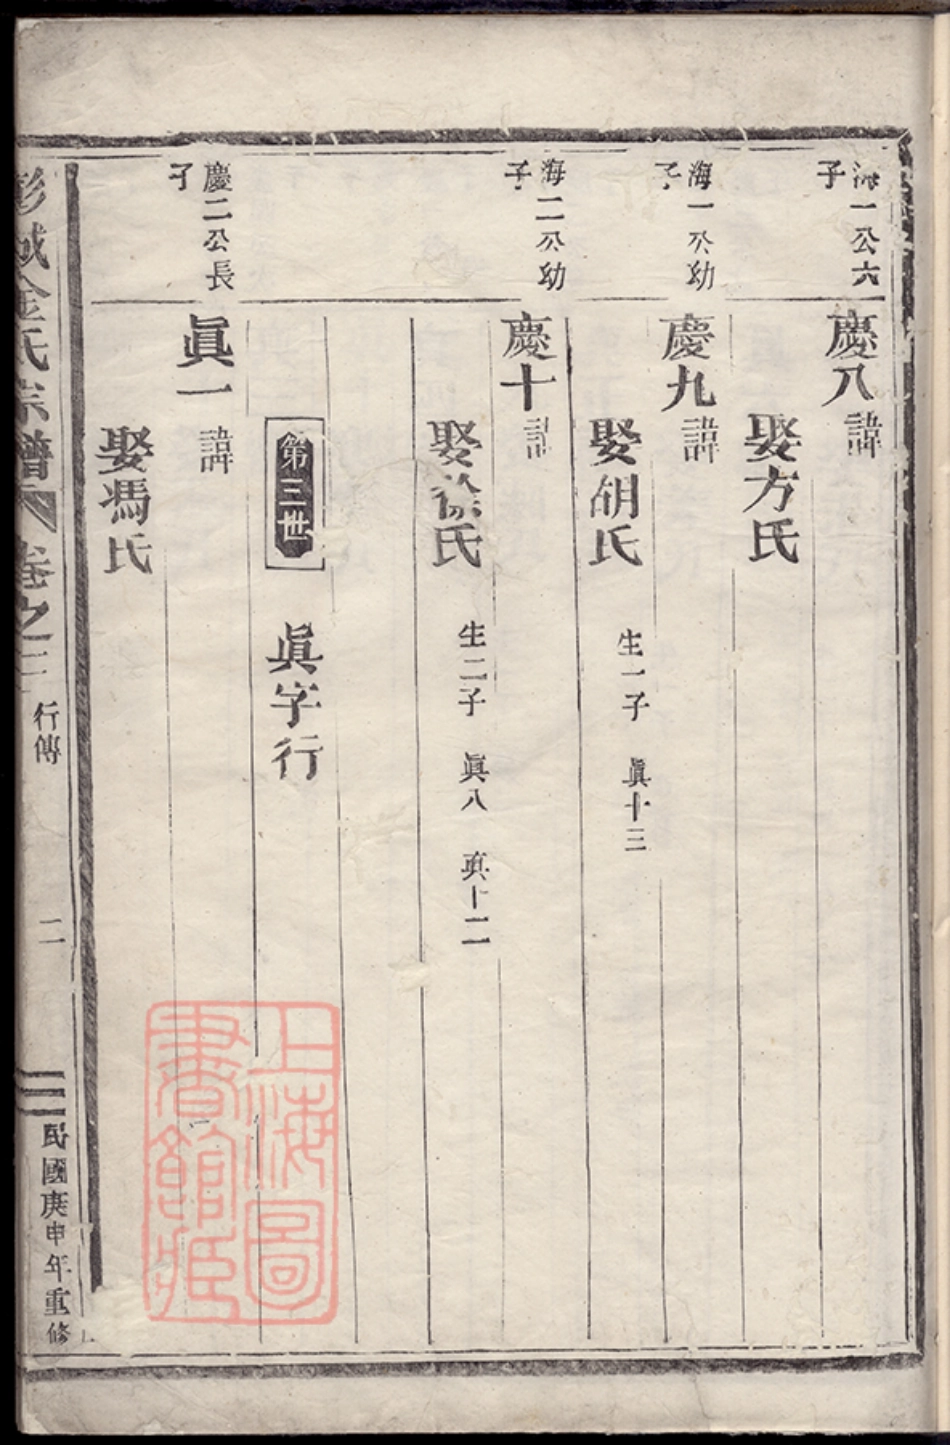 海一公六
子
慶八 諱
娶方氏
海一公幼
子
慶九 諱
娶胡氏 生一子 眞十三
海二公幼
子
慶十 諱
娶徐氏 生二子 眞八 眞十二
第三世 眞字行
慶二公長
子
眞一 諱
娶馮氏
彭城金氏宗譜 卷之二 行傳 二 民國庚申年重修
上海圖
書館藏